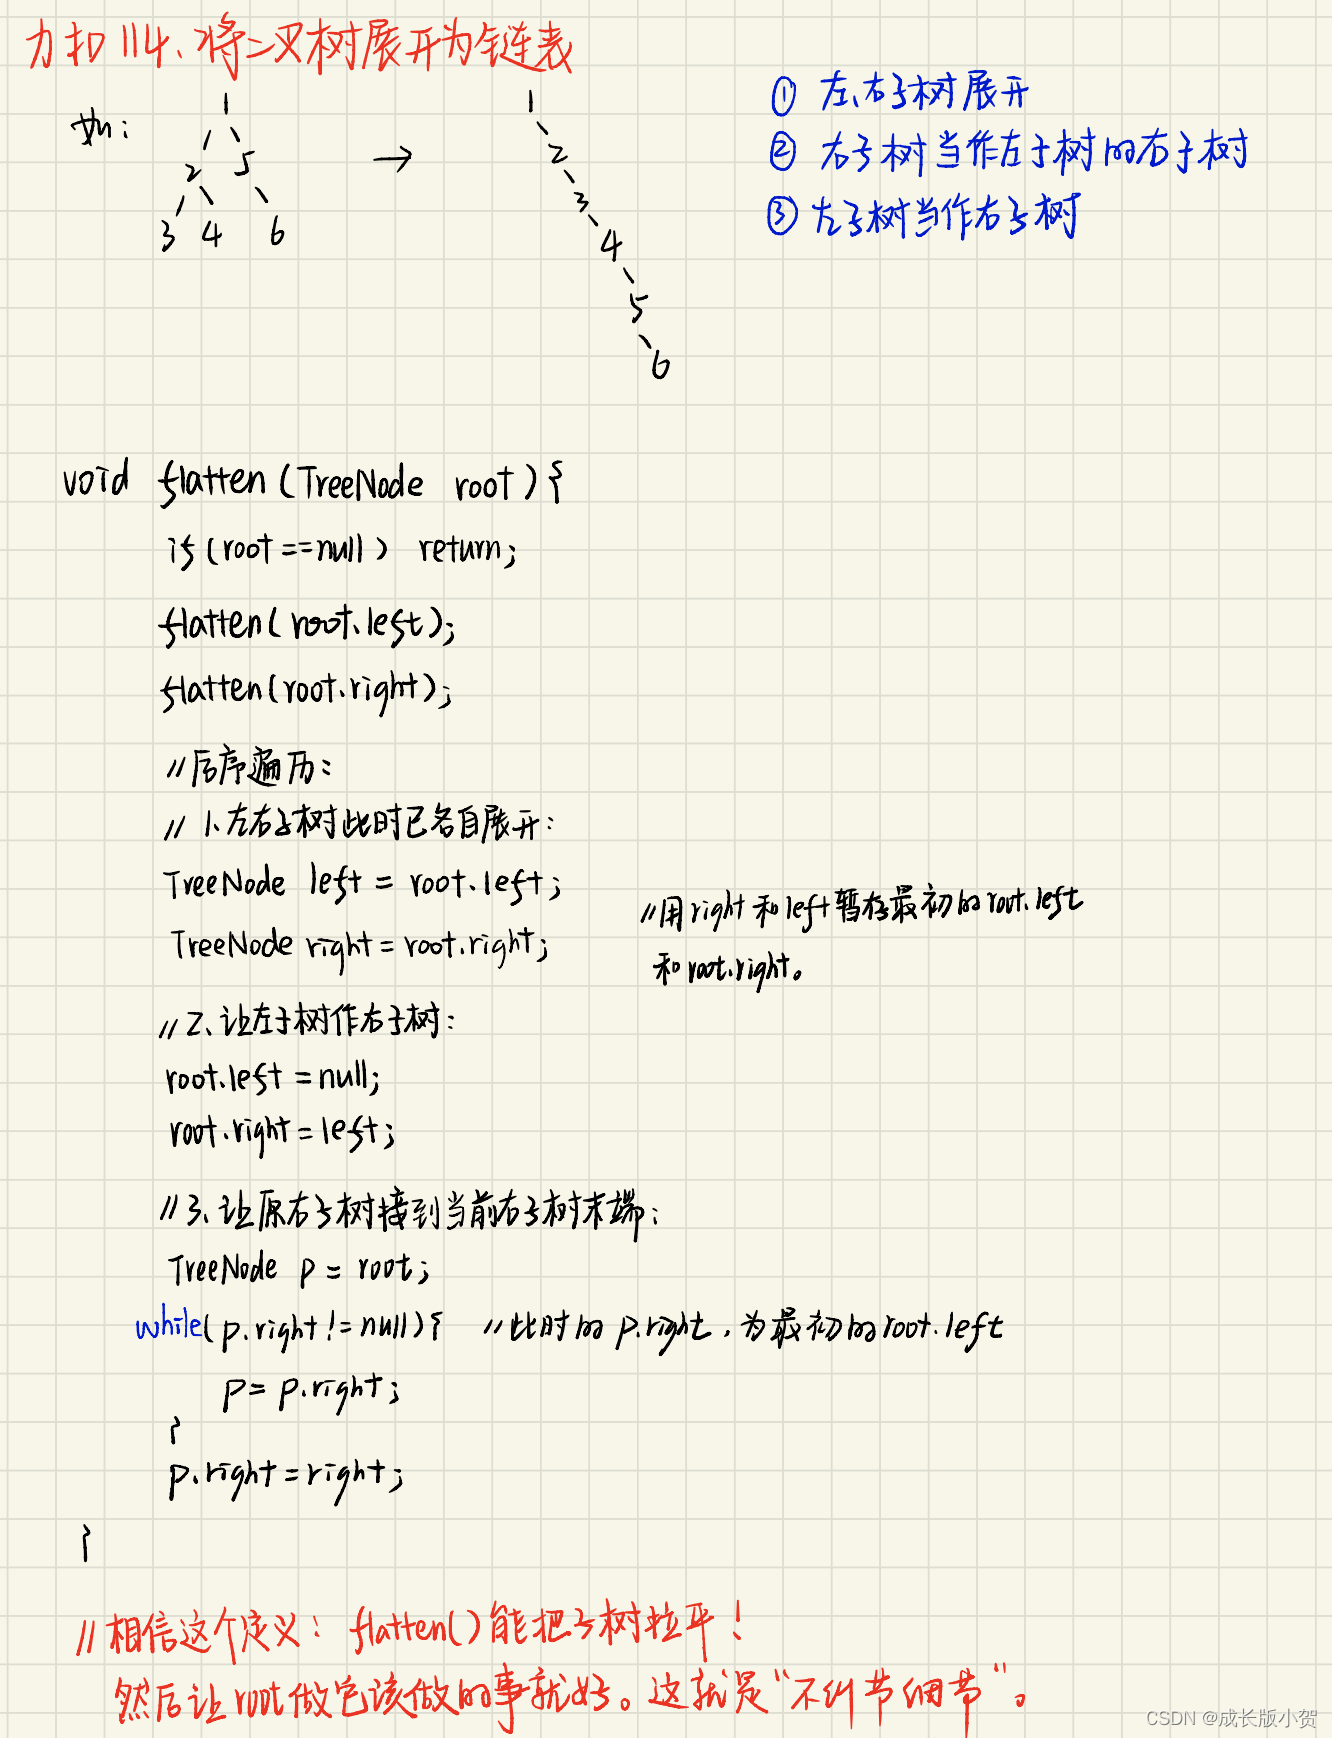 力扣114、将二叉树展开为链表
如:
1
2 5
3 4 6
→
1
2
3
4
5
6
① 左、右子树展开
② 右子树当作左子树的右子树
③ 左子树当作右子树
void flatten(TreeNode root){
if(root==null) return;
flatten(root.left);
flatten(root.right);
//后序遍历:
// 1、左右子树此时已各自展开:
TreeNode left = root.left;
TreeNode right = root.right;
//用right和left暂存最初的root.left
和root.right。
//2、让左子树作右子树:
root.left = null;
root.right = left;
//3、让原右子树接到当前右子树末端:
TreeNode p = root;
while(p.right != null){ //此时的p.right,为最初的root.left
p = p.right;
}
p.right = right;
}
//相信这个定义: flatten()能把子树拉平!
然后让root做它该做的事就好。这就是“不纠节细节”。
CSDN @成长版小贺